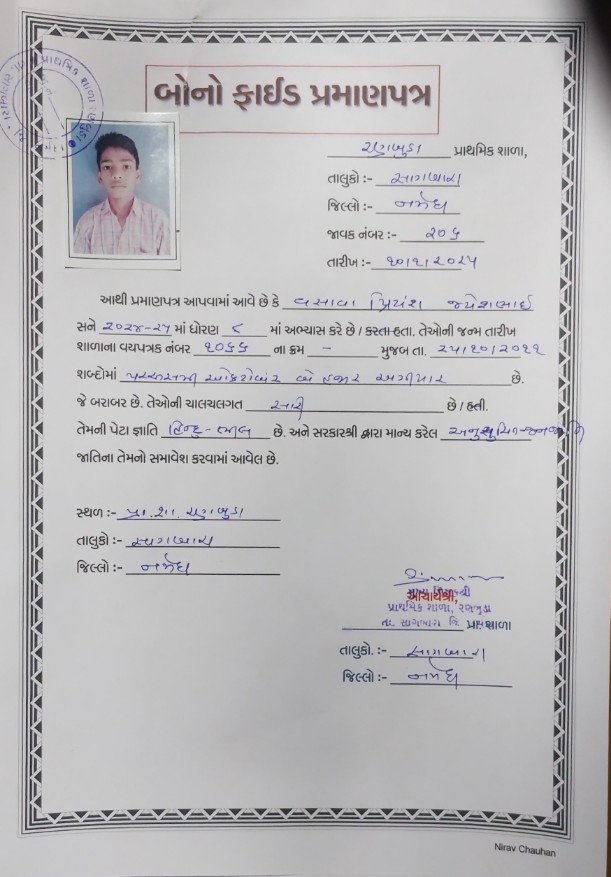 બોનો ફાઈડ પ્રમાણપત્ર
રણબુડા પ્રાથમિક શાળા,
તાલુકો :- સાગબારા
જિલ્લો :- નર્મદા
જાવક નંબર :- ૨૦૬
તારીખ :- ૧૦/૧/૨૦૨૫
આથી પ્રમાણપત્ર આપવામાં આવે છે કે વસાવા પ્રિયંશ જયેશભાઈ
સને ૨૦૨૪-૨૫ માં ધોરણ ૮ માં અભ્યાસ કરે છે / કરતા હતા. તેઓની જન્મ તારીખ
શાળાના વયપત્રક નંબર ૧૦૬૬ ના ક્રમ - મુજબ તા. ૨૫/૧૦/૨૦૧૧
શબ્દોમાં પચ્ચીસમી ઓક્ટોબર બે હજાર અગીયાર છે.
જે બરાબર છે. તેઓની ચાલચલગત સારી છે / હતી.
તેમની પેટા જ્ઞાતિ હિન્દુ-ભીલ છે. અને સરકારશ્રી દ્વારા માન્ય કરેલ અનુસુચિત જનજાતિ
જાતિના તેમનો સમાવેશ કરવામાં આવેલ છે.
સ્થળ :- પ્રા.શા. રણબુડા
તાલુકો :- સાગબારા
જિલ્લો :- નર્મદા
આચાર્યશ્રી,
પ્રાથમિક શાળા, રણબુડા
તા. સાગબારા જિ. પ્રા. શાળા
તાલુકો. :- સાગબારા
જિલ્લો :- નર્મદા
Nirav Chauhan